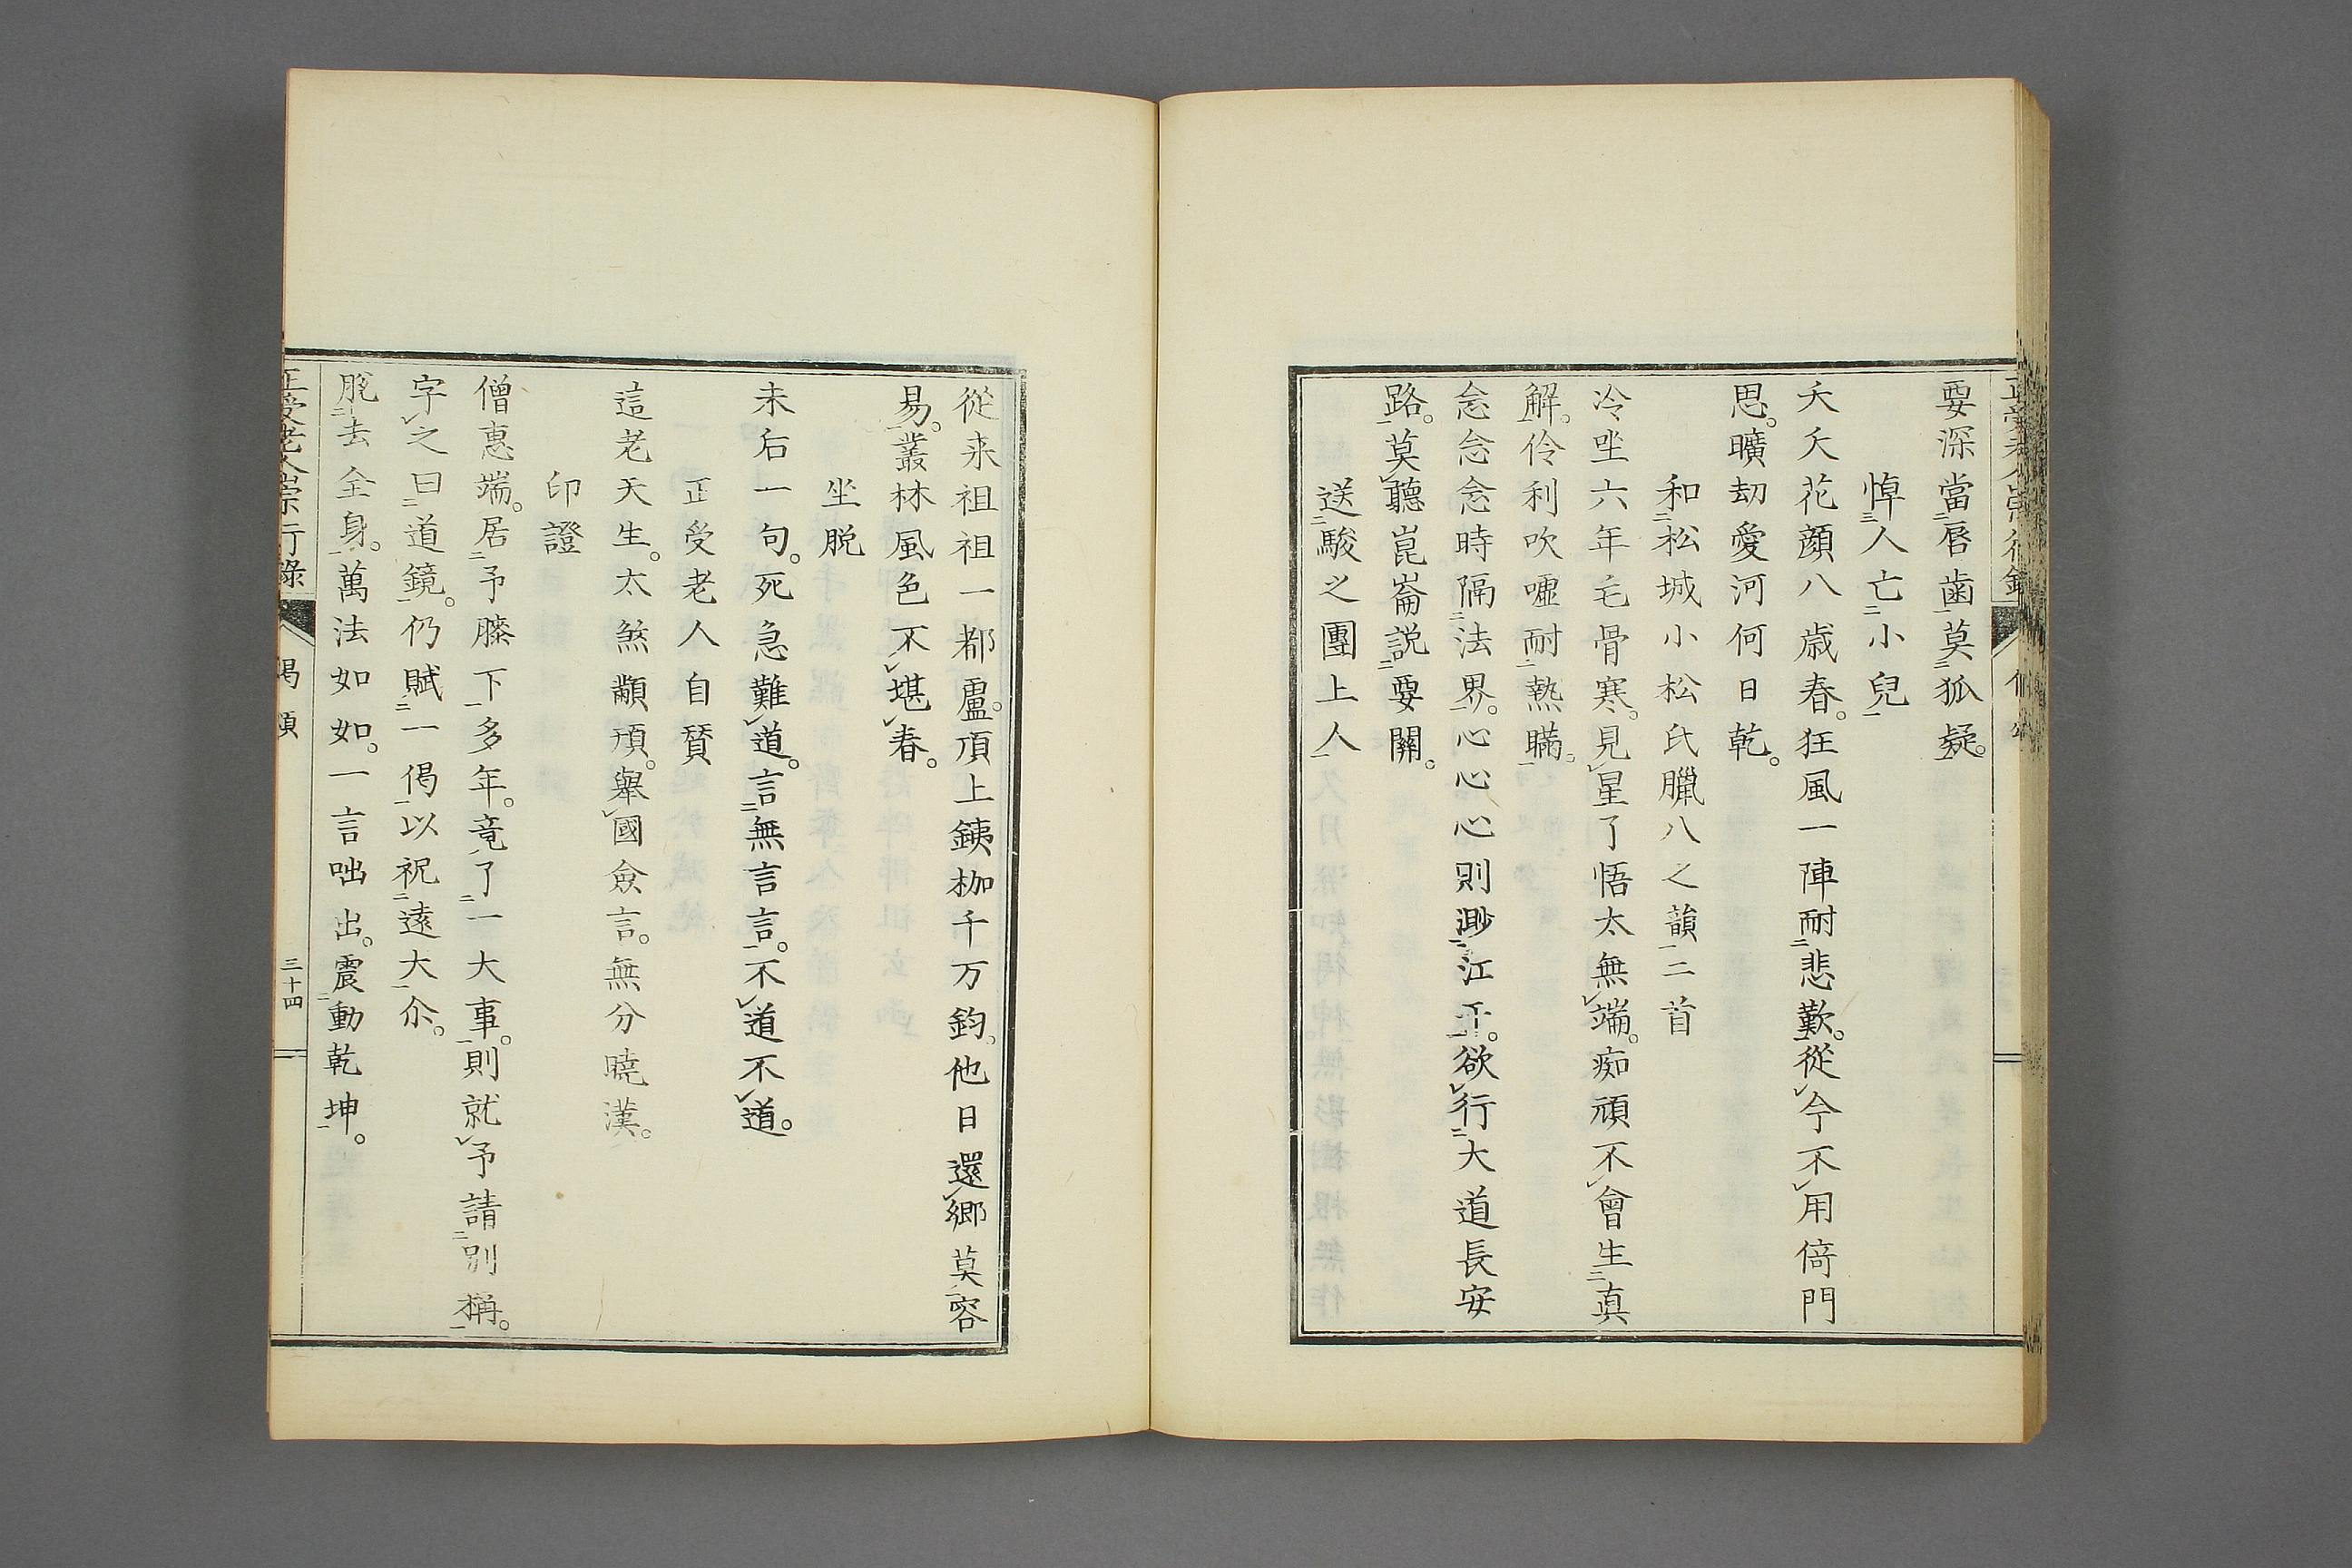 要深當唇齒莫狐疑。
悼人亡小兒
夭夭花顏八歳春。狂風一陣耐悲歎。從今不用倚門
思。曠劫愛河何日乾。
和松城小松氏臘八之韻二首
冷坐六年毛骨寒。見星了悟太無端。痴頑不會生真
解。伶利吹嘘耐熱瞞。
念念念時隔法界。心心心則渺江干。欲行大道長安
路。莫聽崑崙説要關。
送駿之團上人
從来祖祖一都盧。頂上銕枷千万鈞。他日還鄉莫容
易。叢林風色不堪春。
坐脱
末后一句。死急難道。言無言言。不道不道。
正受老人自賛
這老天生。太煞顢頇。舉國僉言。無分曉漢。
印證
僧惠端。居予膝下多年。竟了一大事。則就予請別稱。
字之曰道鏡。仍賦一偈以祝遠大尒。
脱去全身。萬法如如。一言咄出。震動乾坤。
正受老人崇行録
偈頌
三十四